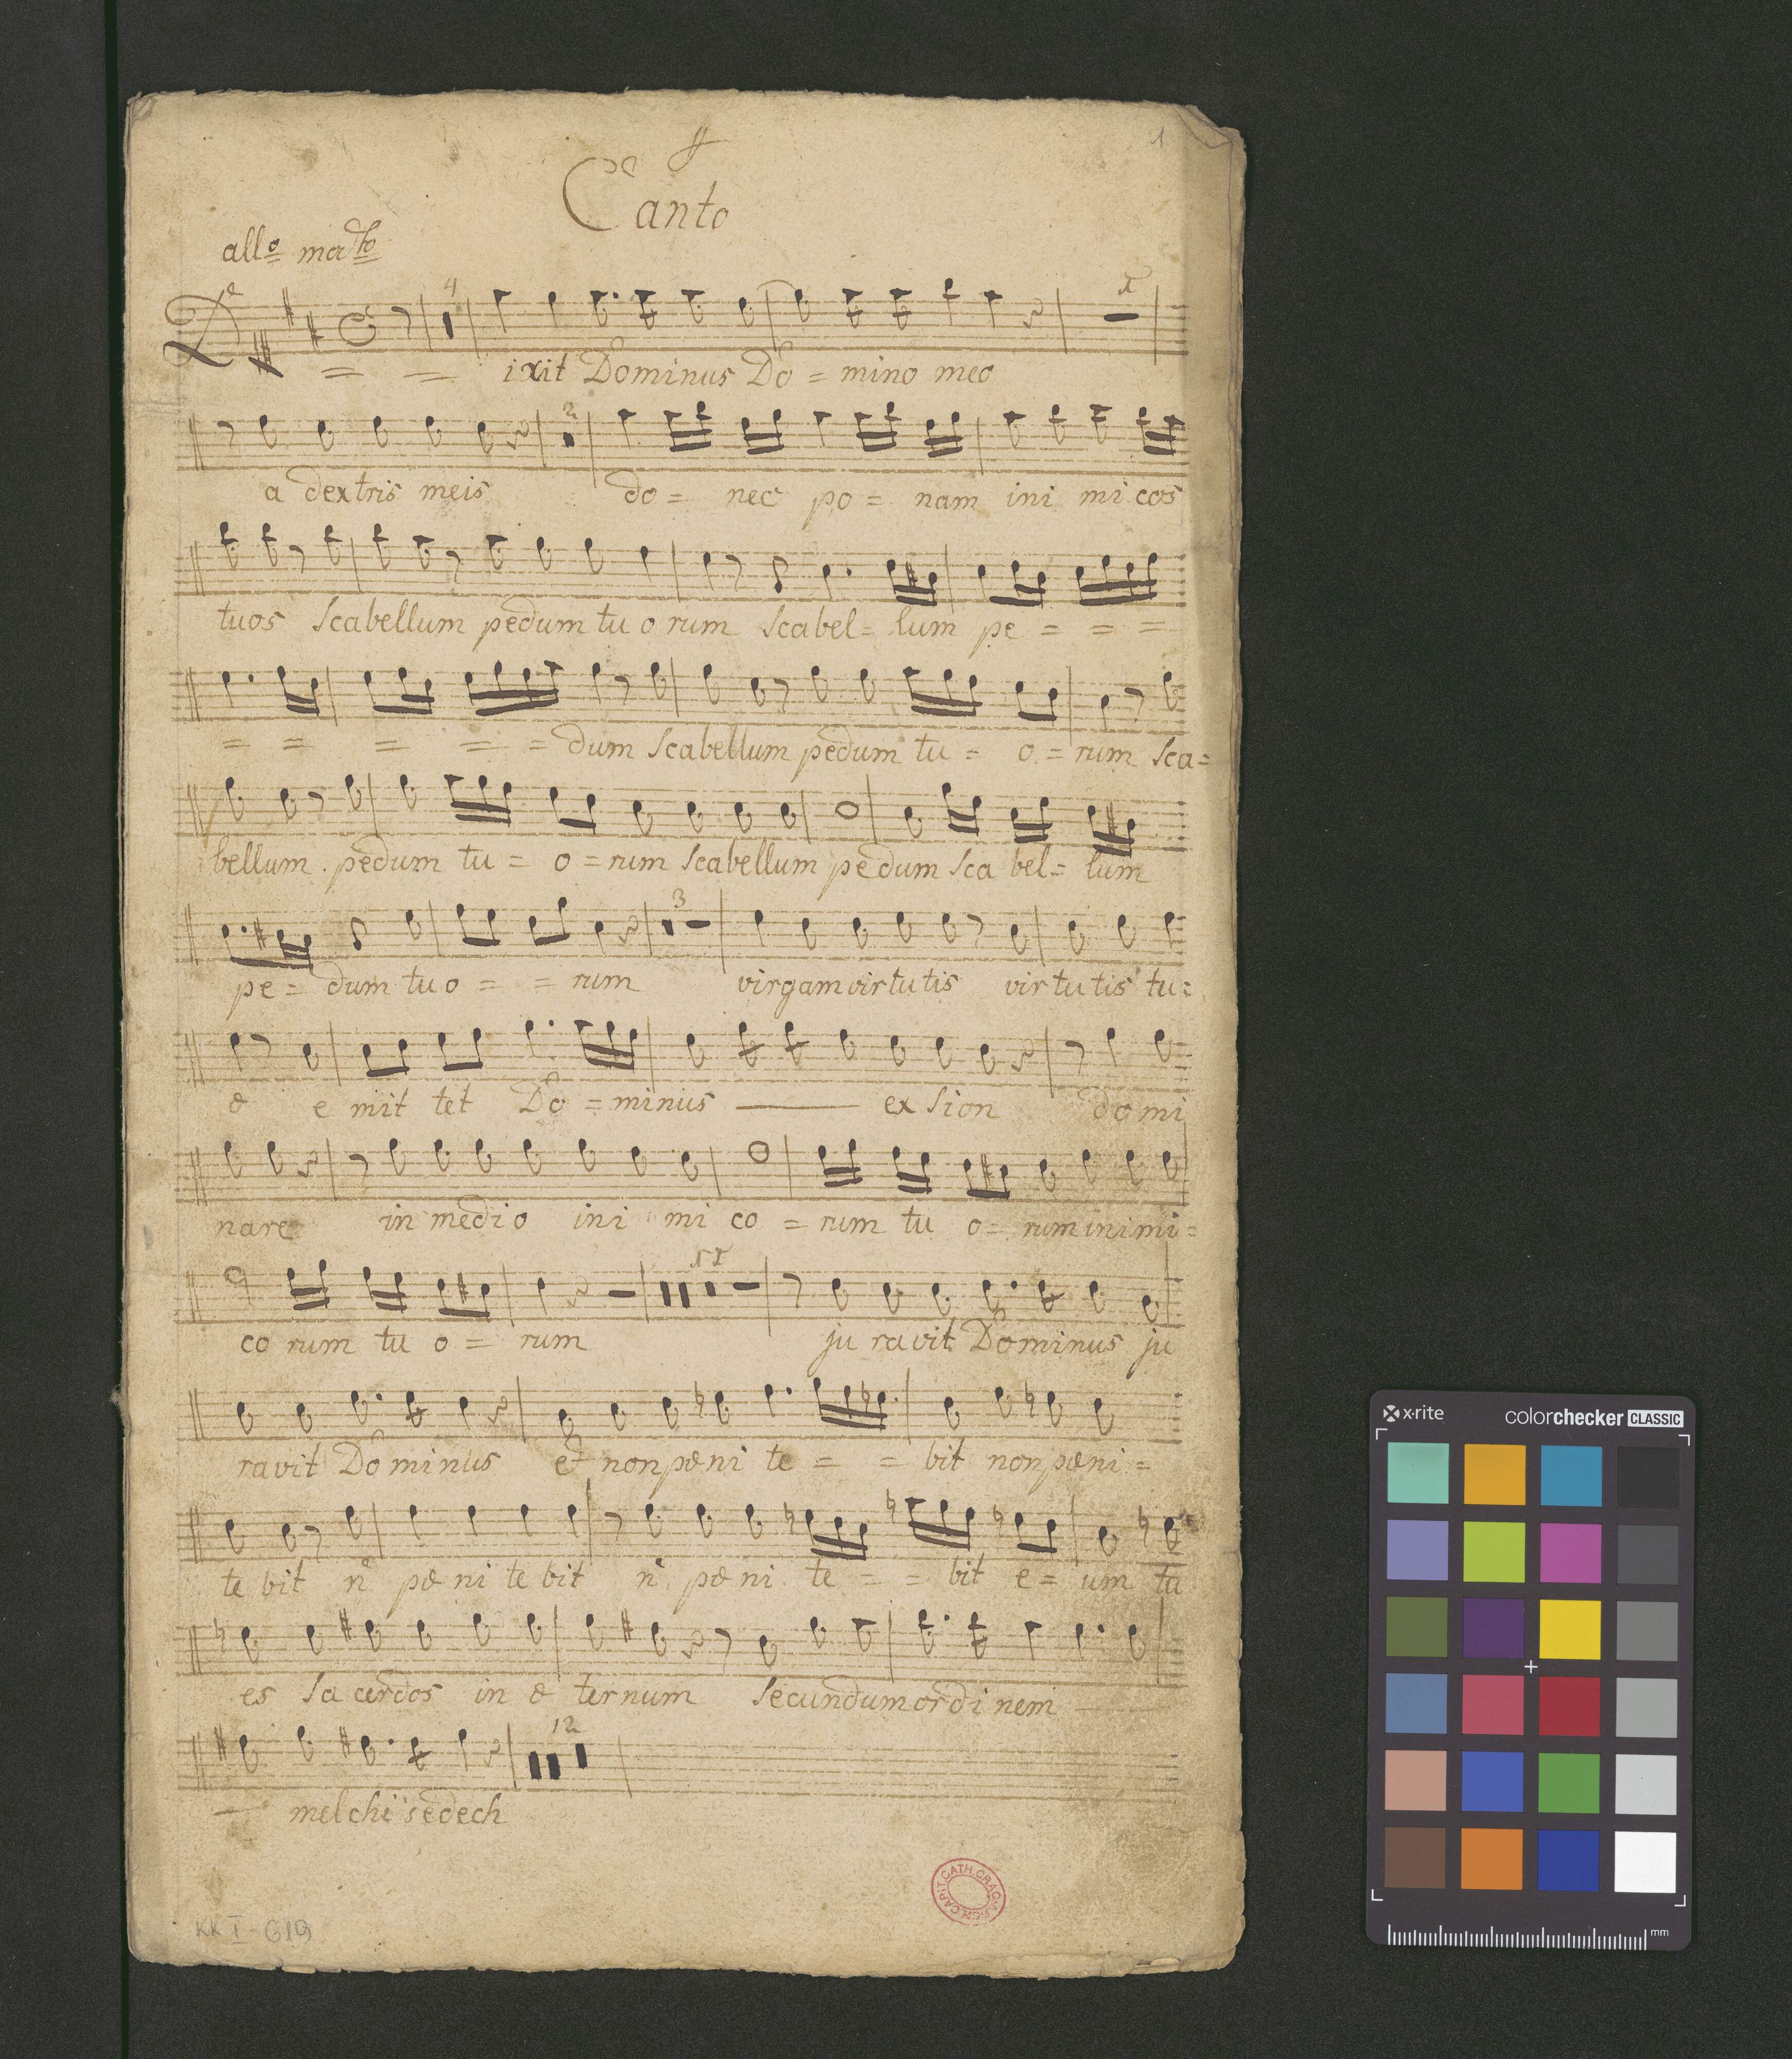 1
Canto
allo mato
4 1
Dixit Dominus Do = mino meo
2
a dextris meis do = nec po = nam ini mi cos
tuos scabellum pedum tu o rum scabel = lum pe = = =
= = = = = dum scabellum pedum tu = o = rum sca =
bellum pedum tu = o = rum scabellum pedum sca bel = lum
3
pe = dum tu o = = rum virgam virtutis vir tu tis tu =
æ e mit tet Do = minus ex sion do mi
nare in medi o ini mi co = rum tu o = rum inimi =
co rum tu o = rum ju ravit Dominus ju
ravit Do mi nus et non pæni te = = bit non pæni =
te bit n pæ ni te bit n pæ ni te = = bit e = um tu
es sa cerdos in æ ternum secundum ordi nem
12
melchi sedech
CAPIT. CATH. CRAC.
KK I - 619
x-rite
colorchecker CLASSIC
mm